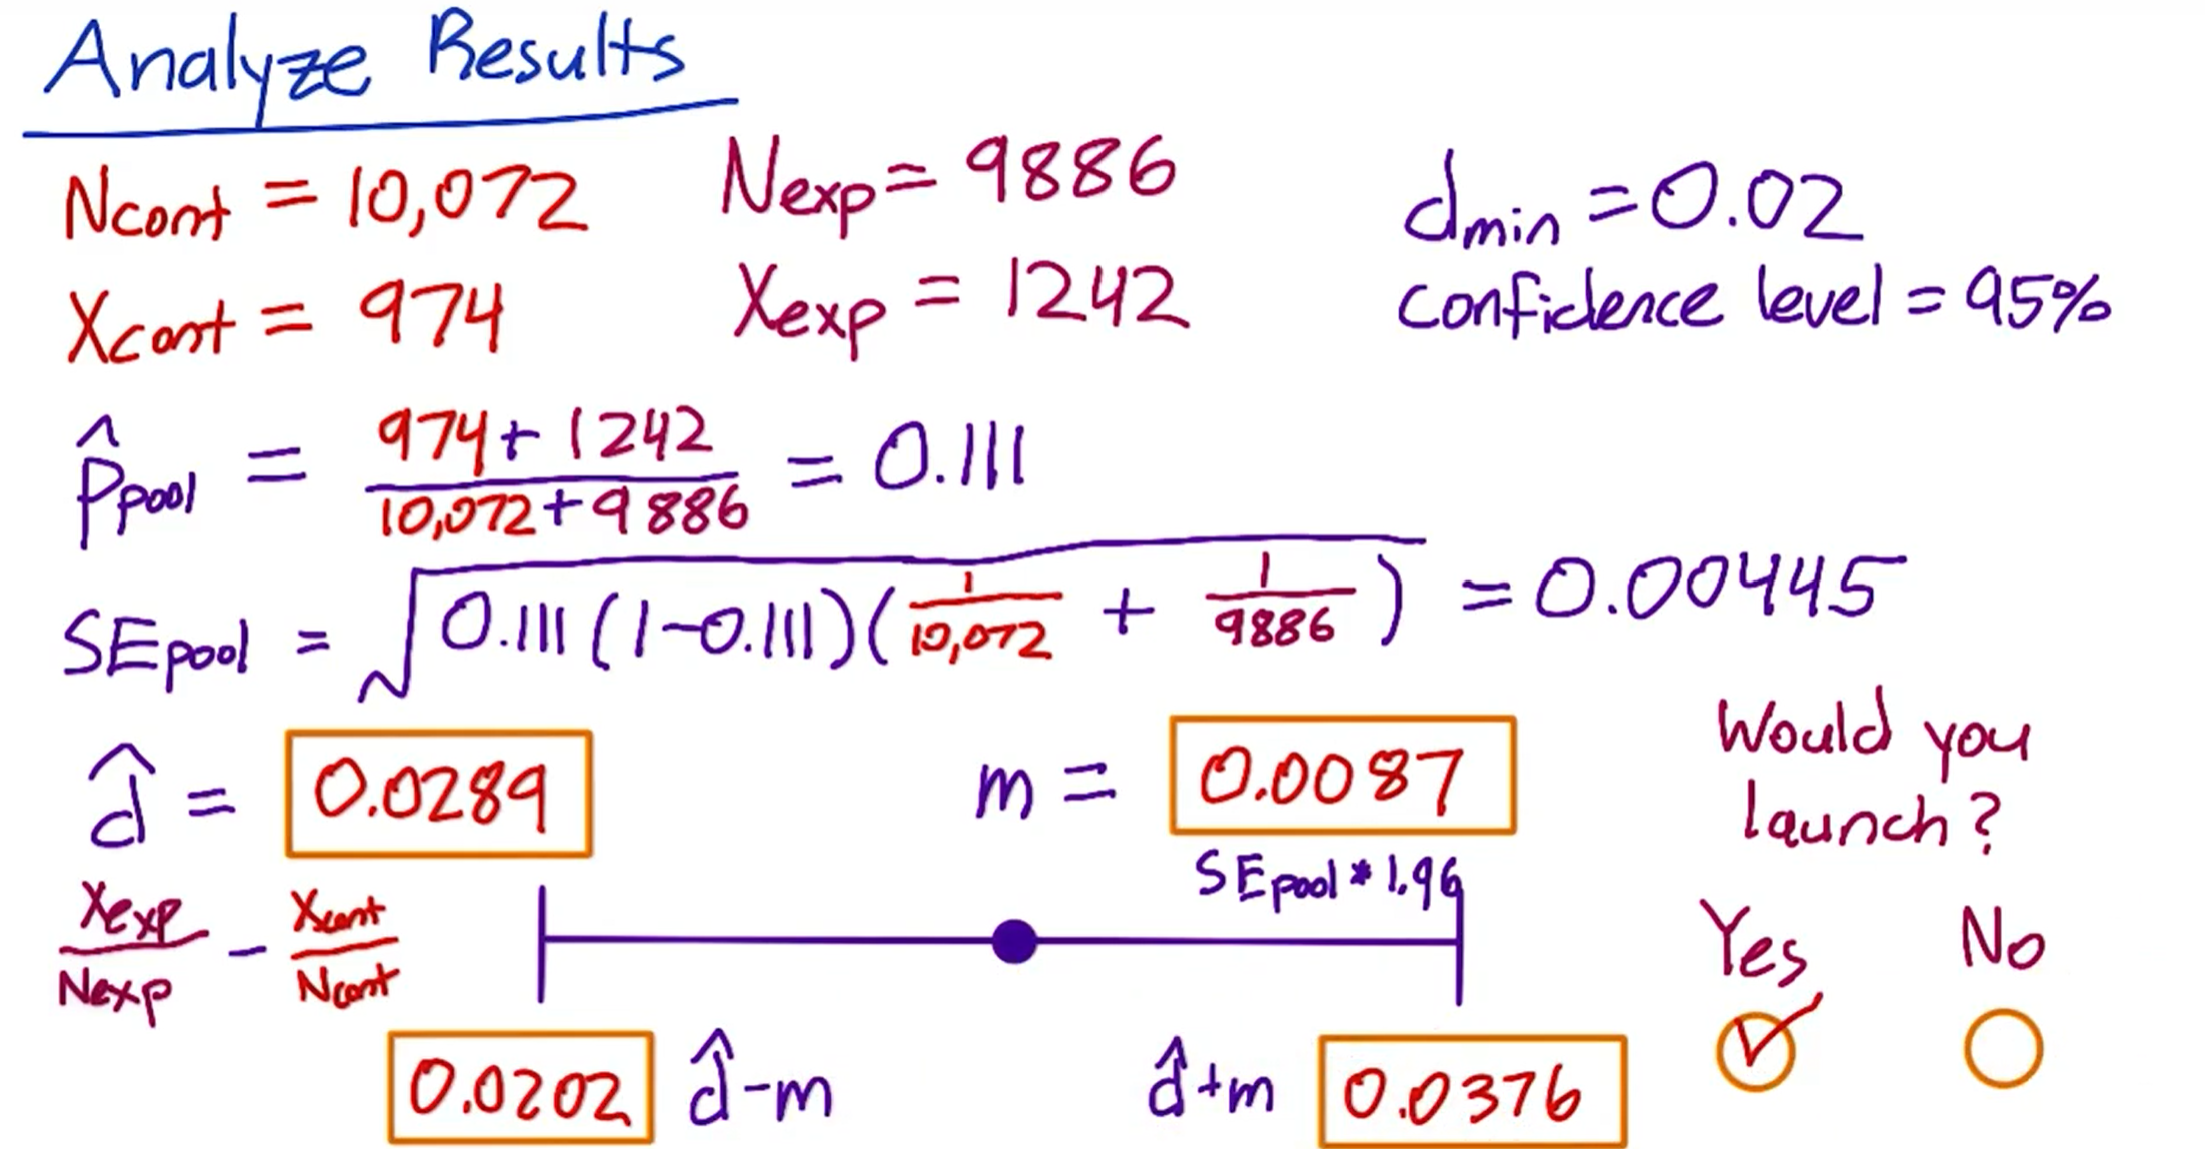 Analyze Results
Ncont = 10,072
Xcont = 974
Nexp = 9886
Xexp = 1242
dmin = 0.02
confidence level = 95%
p̂pool = 974 + 1242 / 10,072 + 9886 = 0.111
SEpool = √0.111 (1-0.111)(1/10,072 + 1/9886) = 0.00445
d̂ = 0.0289
Xexp/Nexp - Xcont/Ncont
m = 0.0087
SEpool * 1.96
0.0202 d̂-m
d̂+m 0.0376
Would you
launch?
Yes No